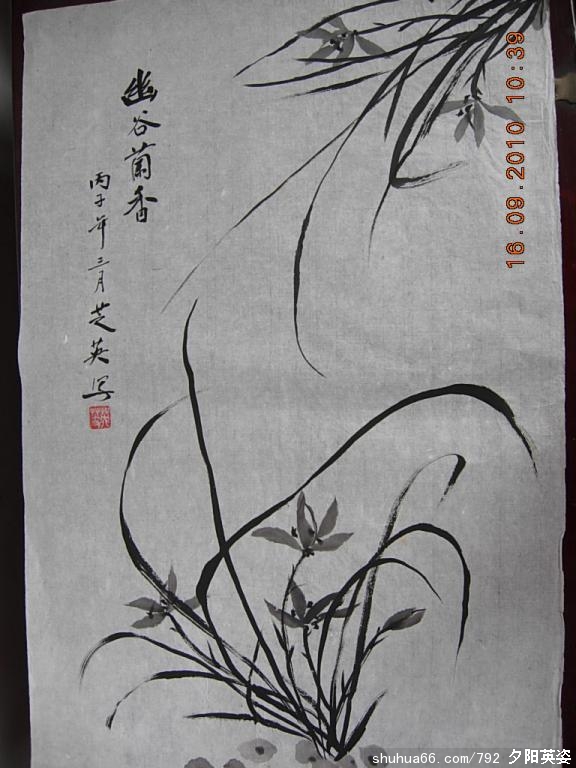 幽谷蘭香
丙子年三月芝英写
16.09.2010 10:39
shuhua66.com/792 夕阳英姿